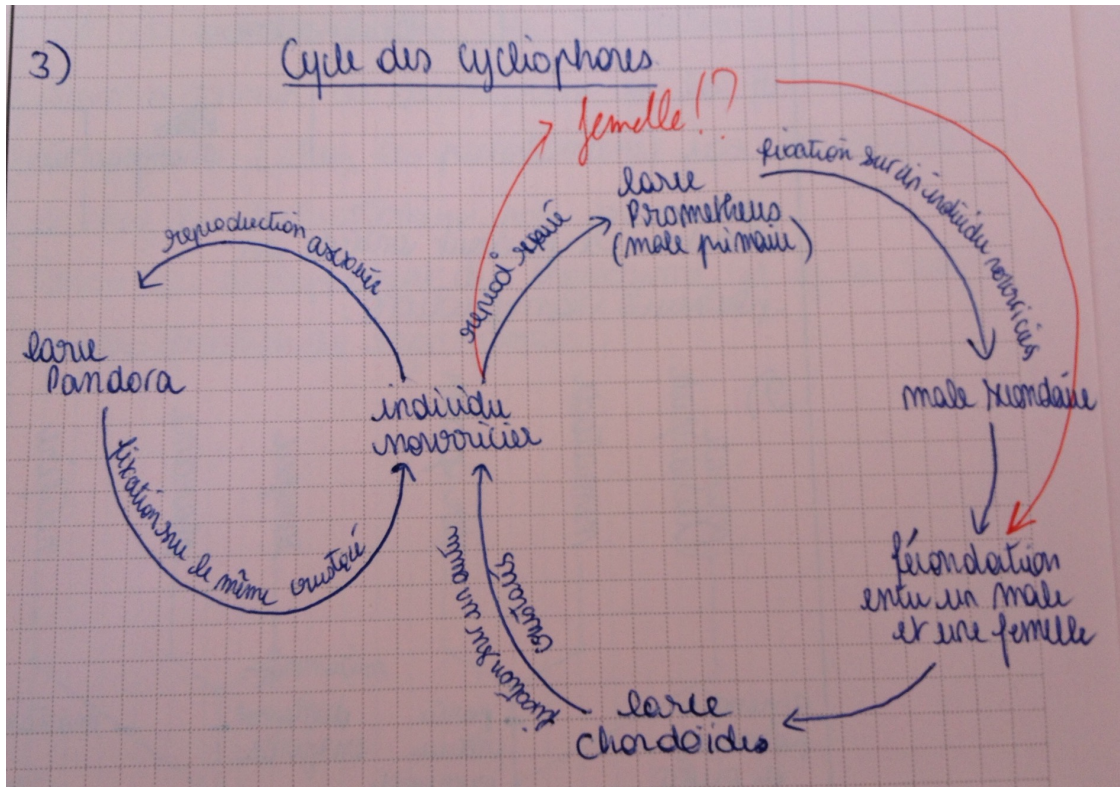 3)
Cycle des cycliophores
femelle!?
larve
Prometheus
(male primaire)
fixation sur un individu nourricier
reproduction asexuée
reprod° sexuée
larve
Pandora
individu
nourricier
male secondaire
fixation sur le même crustacé
fixation sur un autre
crustacés
fécondation
entre un male
et une femelle
larve
chordoïdes